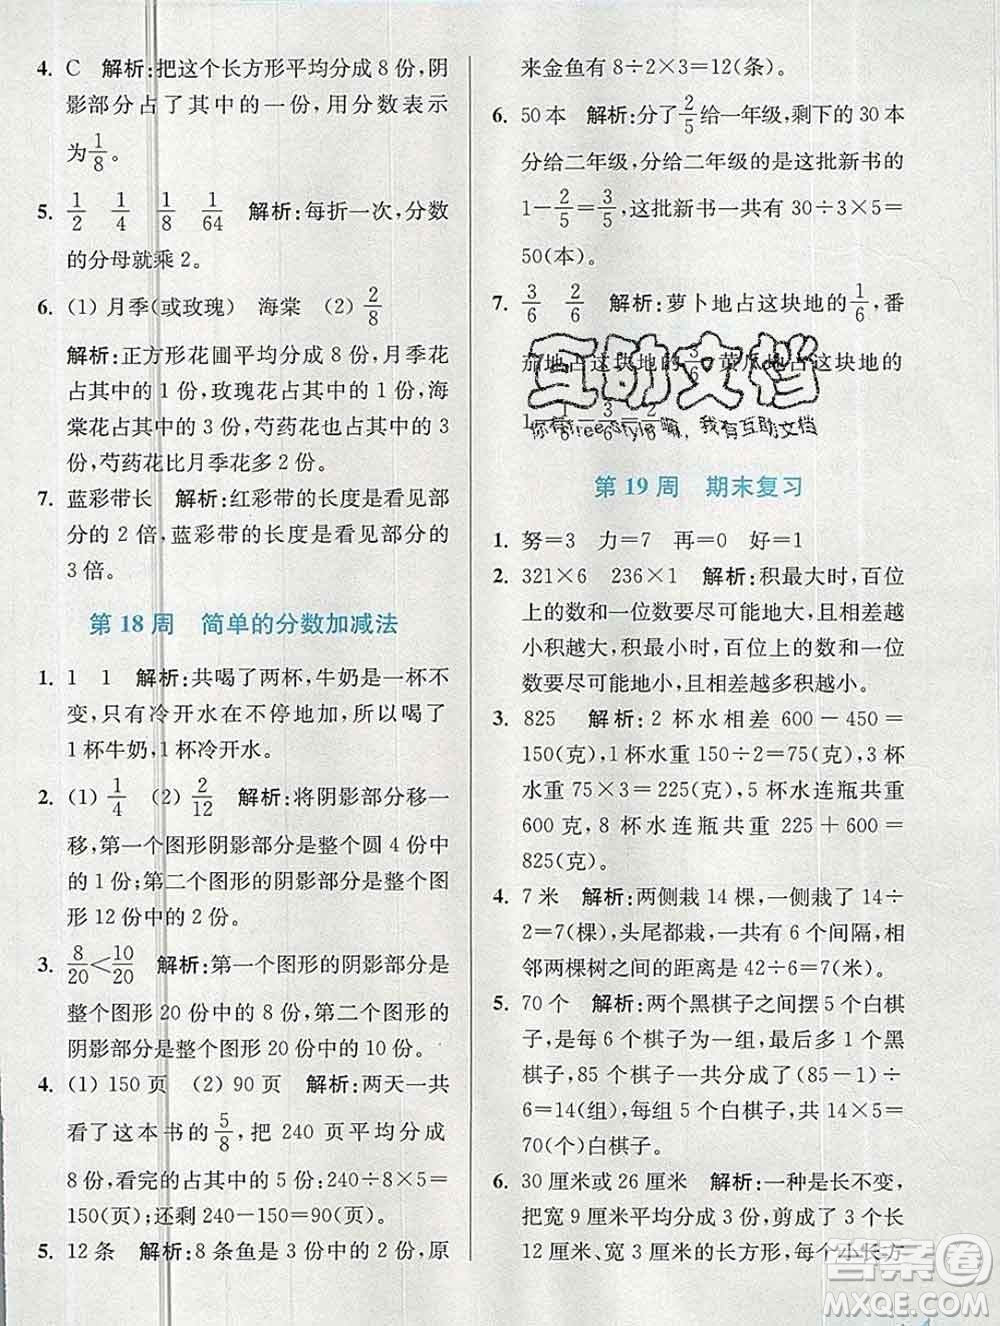 4. C 解析:把这个长方形平均分成 8 份,阴
影部分占了其中的一份,用分数表示
为1/8。
5. 1/2 1/4 1/8 1/64 解析:每折一次,分数
的分母就乘 2。
6. (1) 月季(或玫瑰) 海棠 (2) 2/8
解析:正方形花圃平均分成 8 份,月季花
占其中的 1 份,玫瑰花占其中的 1 份,海
棠花占其中的 3 份,芍药花占其中的 3
份,芍药花比月季花多 2 份。
7. 蓝彩带长 解析:红彩带的长度是看见部分
的 2 倍,蓝彩带的长度是看见部分的
3 倍。
第 18 周 简单的分数加减法
1. 1 1 解析:共喝了两杯,牛奶是一杯不
变,只有冷开水在不停地加,所以喝了
1 杯牛奶,1 杯冷开水。
2. (1) 1/4 (2) 2/12 解析:将阴影部分移一
移,第一个图形阴影部分是整个圆 4 份中
的 1 份;第二个图形的阴影部分是整个图
形 12 份中的 2 份。
3. 8/20<10/20 解析:第一个图形的阴影部分是
整个图形 20 份中的 8 份,第二个图形的
阴影部分是整个图形 20 份中的 10 份。
4. (1) 150 页 (2) 90 页 解析:两天一共
看了这本书的5/8,把 240 页平均分成
8 份,看完的占其中的 5 份:240÷8×5=
150(页);还剩 240-150=90(页)。
5. 12 条 解析:8 条鱼是 3 份中的 2 份,原
来金鱼有 8÷2×3=12(条)。
6. 50 本 解析:分了2/5给一年级,剩下的 30 本
分给二年级,分给二年级的是这批新书的
1-2/5=3/5,这批新书一共有 30÷3×5=
50(本)。
7. 3/6 2/6 解析:萝卜地占这块地的1/6,番
茄地占这块地的3/6,黄瓜地占这块地的
互助文档
你有freestyle嘛,我有互助文档
第 19 周 期末复习
1. 努=3 力=7 再=0 好=1
2. 321×6 236×1 解析:积最大时,百位
上的数和一位数要尽可能地大,而且相差
越小积越大;积最小时,百位上的数和一位
数要尽可能地小,且相差越多积越小。
3. 825 解析:2 杯水相差 600-450=
150(克),1 杯水重 150÷2=75(克),3 杯
水重 75×3=225(克),5 杯水连瓶共重
600 克,8 杯水连瓶共重 225+600=
825(克)。
4. 7 米 解析:两侧栽 14 棵,一侧栽 14÷
2=7(棵),头尾都栽,一共有 6 个间隔,相
邻两棵树之间的距离是 42÷6=7(米)。
5. 70 个 解析:两个黑棋子之间摆 5 个白棋
子,是每 6 个棋子为一组,最后多 1 个黑
棋子,85 个棋子一共分成了 (85-1)÷
6=14(组),每组 5 个白棋子,共 14×5=
70(个)白棋子。
6. 30 厘米或 26 厘米 解析:一种是长不变,
把宽 9 厘米平均分成 3 份,3 个长
12 厘米、宽 3 厘米的长方形,每个小长方
答案圈
MXQE.COM